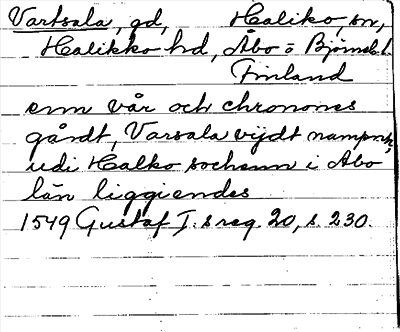 Vartsala, gd, Haliko, sn,
Halikko hd, Åbo o Björneb. l.
Finland
enn vår och chronones
gårdt, Varsala vijdt nampndh,
udi Halko sochenn i Åbo
län liggiendes
1549 Gustaf I. s reg. 20, s. 230.